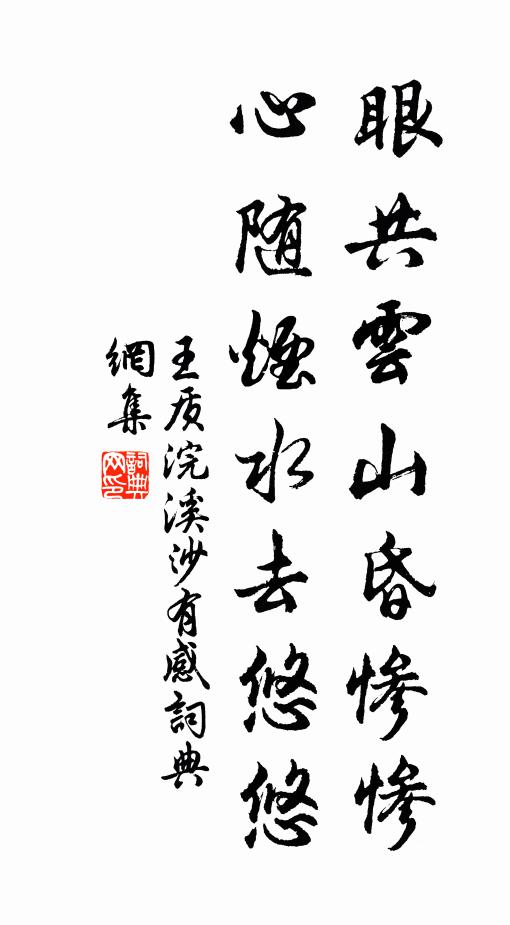 眼共雲山昏惨惨
心随煙水去悠悠
王质浣溪沙有感詞典
網集
詞典網印